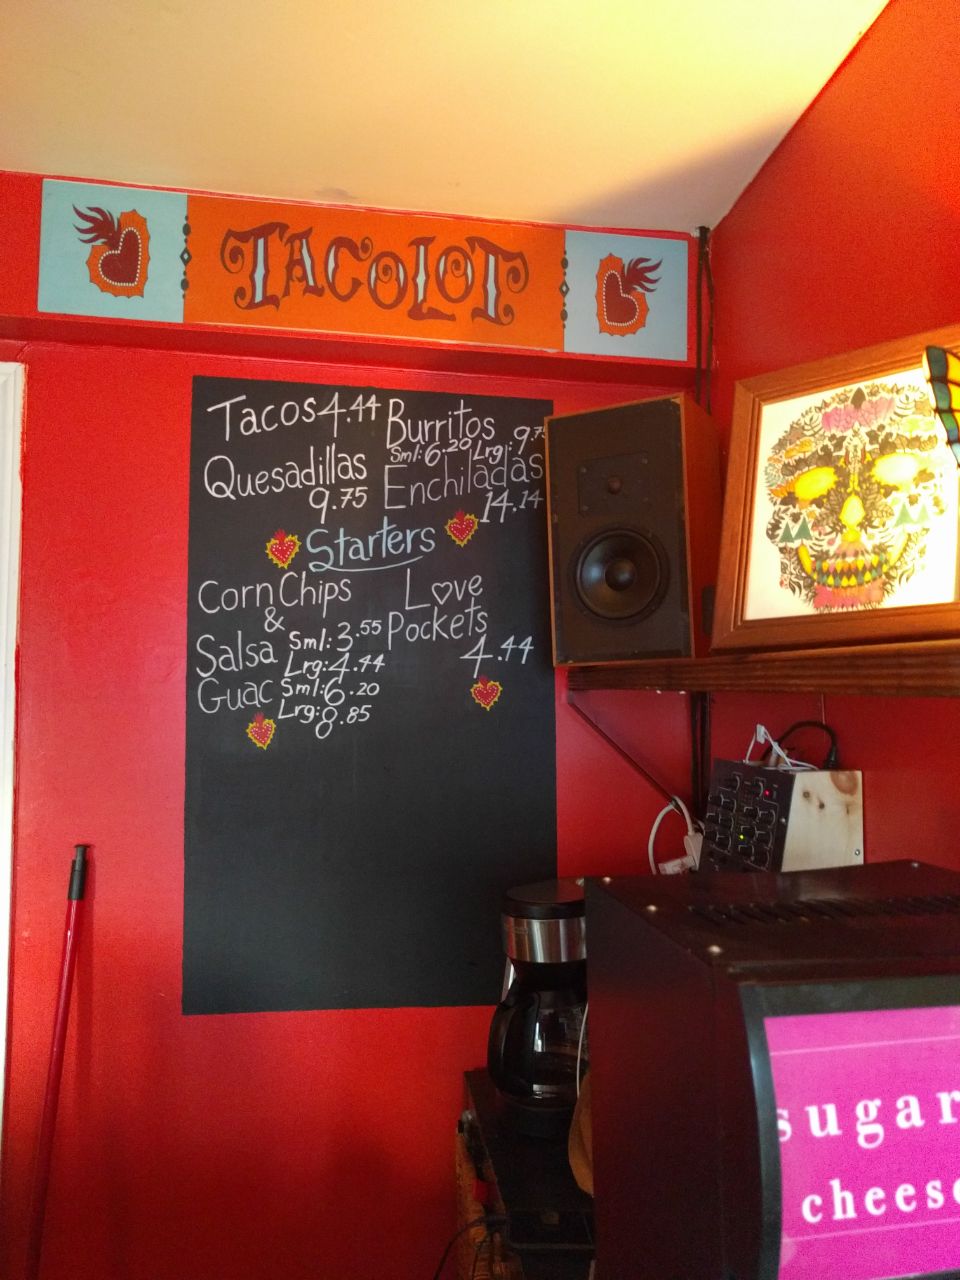 TACOLOT
Tacos 4.44
Burritos
Sml: 6.20 Lrg: 9.75
Quesadillas
9.75
Enchiladas
14.14
Starters
Corn Chips
&
Salsa Sml: 3.55
Lrg: 4.44
Guac Sml: 6.20
Lrg: 8.85
Love
Pockets
4.44
sugar
cheese